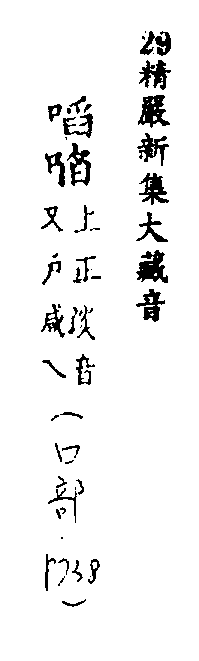 29精嚴新集大藏音
啗
上正淡音
又戶咸乀
(口部·P738)